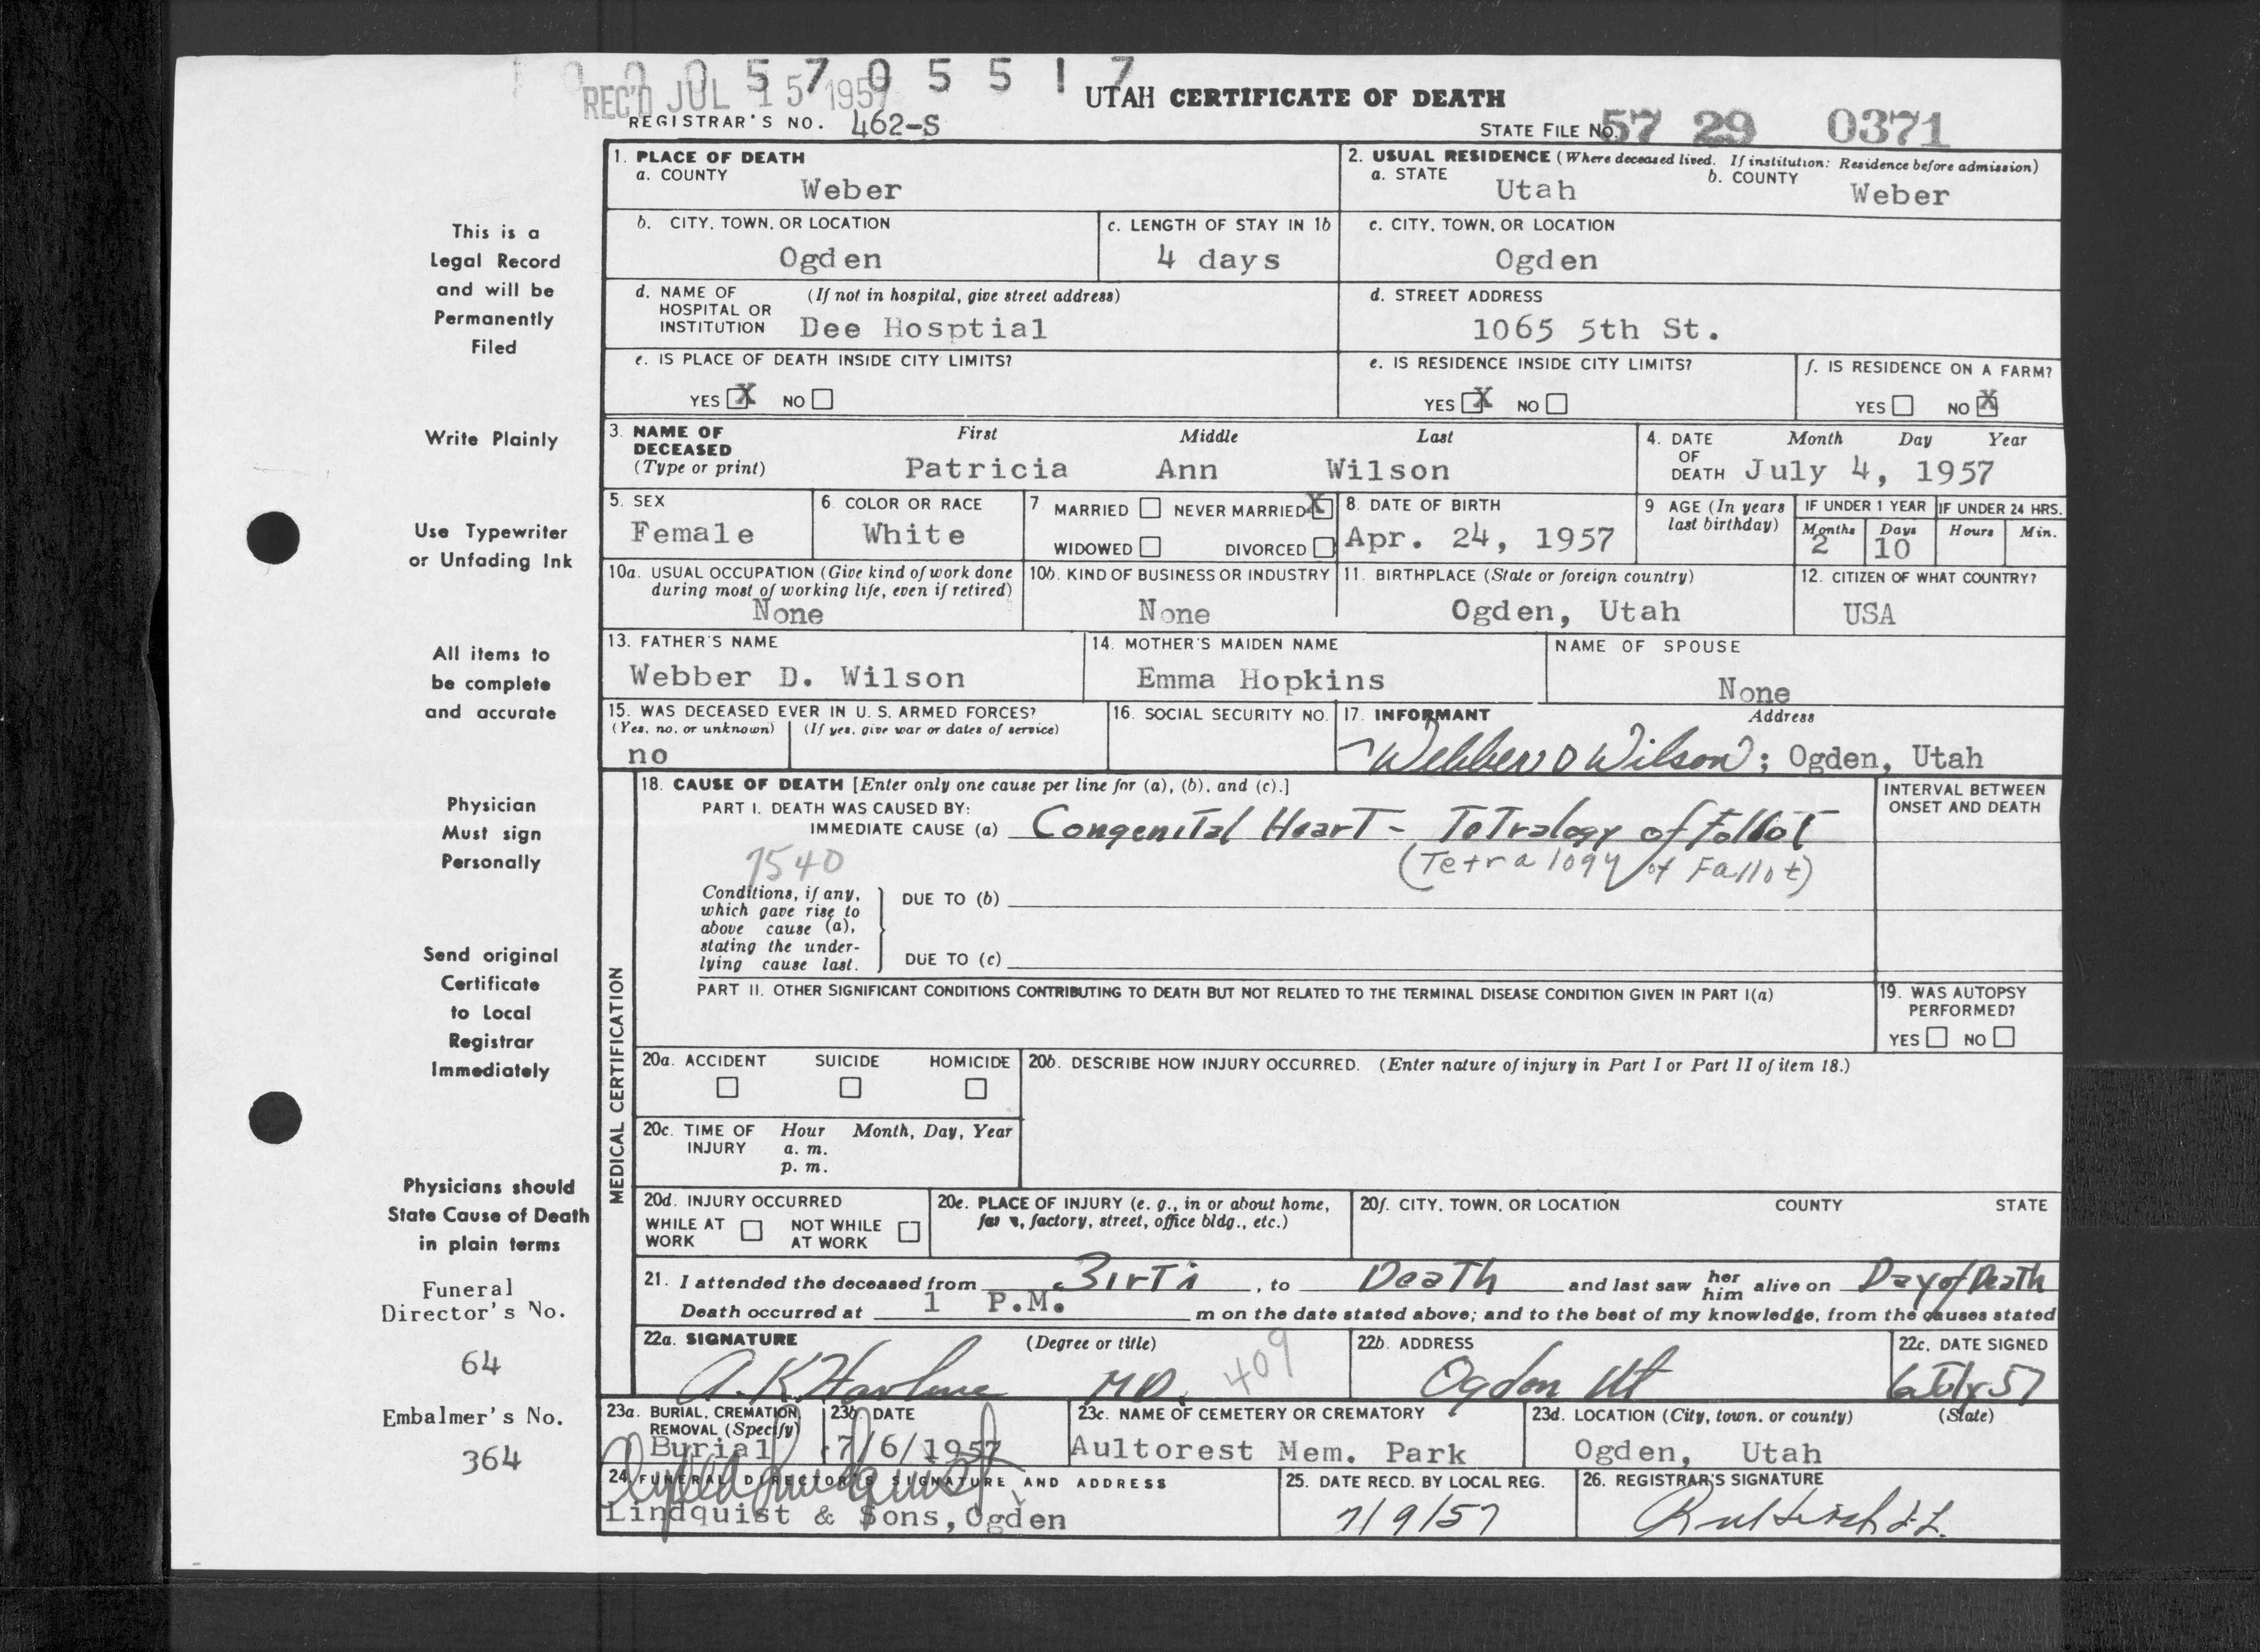 0 0 0 5 7 0 5 5 1 7
REC'D JUL 15 1957
UTAH CERTIFICATE OF DEATH
REGISTRAR'S NO. 462-S
STATE FILE NO. 57 29 0371
1. PLACE OF DEATH
a. COUNTY
Weber
2. USUAL RESIDENCE (Where deceased lived. If institution: Residence before admission)
a. STATE Utah b. COUNTY Weber
b. CITY, TOWN, OR LOCATION
Ogden
c. LENGTH OF STAY IN 1b
4 days
c. CITY, TOWN, OR LOCATION
Ogden
d. NAME OF HOSPITAL OR INSTITUTION (If not in hospital, give street address)
Dee Hosptial
d. STREET ADDRESS
1065 5th St.
e. IS PLACE OF DEATH INSIDE CITY LIMITS?
YES X NO
e. IS RESIDENCE INSIDE CITY LIMITS?
YES X NO
f. IS RESIDENCE ON A FARM?
YES NO X
3. NAME OF DECEASED (Type or print)
First Middle Last
Patricia Ann Wilson
4. DATE OF DEATH
Month Day Year
July 4, 1957
5. SEX
Female
6. COLOR OR RACE
White
7 MARRIED NEVER MARRIED X
WIDOWED DIVORCED
8. DATE OF BIRTH
Apr. 24, 1957
9 AGE (In years last birthday)
IF UNDER 1 YEAR
Months Days
2 10
IF UNDER 24 HRS.
Hours Min.
10a. USUAL OCCUPATION (Give kind of work done during most of working life, even if retired)
None
10b. KIND OF BUSINESS OR INDUSTRY
None
11. BIRTHPLACE (State or foreign country)
Ogden, Utah
12. CITIZEN OF WHAT COUNTRY?
USA
13. FATHER'S NAME
Webber D. Wilson
14. MOTHER'S MAIDEN NAME
Emma Hopkins
NAME OF SPOUSE
None
15. WAS DECEASED EVER IN U. S. ARMED FORCES?
(Yes, no, or unknown) (If yes, give war or dates of service)
no
16. SOCIAL SECURITY NO.
17. INFORMANT Address
Webber D Wilson; Ogden, Utah
MEDICAL CERTIFICATION
18. CAUSE OF DEATH [Enter only one cause per line for (a), (b), and (c).]
PART I. DEATH WAS CAUSED BY:
IMMEDIATE CAUSE (a) Congenital Heart - Tetralogy of Follot
7540
(Tetralogy of Fallot)
INTERVAL BETWEEN ONSET AND DEATH
Conditions, if any, which gave rise to above cause (a), stating the underlying cause last.
DUE TO (b)
DUE TO (c)
PART II. OTHER SIGNIFICANT CONDITIONS CONTRIBUTING TO DEATH BUT NOT RELATED TO THE TERMINAL DISEASE CONDITION GIVEN IN PART I(a)
19. WAS AUTOPSY PERFORMED?
YES NO
20a. ACCIDENT SUICIDE HOMICIDE
20b. DESCRIBE HOW INJURY OCCURRED. (Enter nature of injury in Part I or Part II of item 18.)
20c. TIME OF INJURY Hour Month, Day, Year
a. m.
p. m.
20d. INJURY OCCURRED
WHILE AT WORK NOT WHILE AT WORK
20e. PLACE OF INJURY (e. g., in or about home, farm, factory, street, office bldg., etc.)
20f. CITY, TOWN, OR LOCATION COUNTY STATE
21. I attended the deceased from Birth, to Death and last saw her him alive on Day of Death
Death occurred at 1 P.M. m on the date stated above; and to the best of my knowledge, from the causes stated
22a. SIGNATURE (Degree or title)
A. K. MD. 409
22b. ADDRESS
Ogden Ut
22c. DATE SIGNED
6 July 57
23a. BURIAL, CREMATION, REMOVAL (Specify)
Burial
23b. DATE
7/6/1957
23c. NAME OF CEMETERY OR CREMATORY
Aultorest Mem. Park
23d. LOCATION (City, town, or county) (State)
Ogden, Utah
24. FUNERAL DIRECTOR'S SIGNATURE AND ADDRESS
Lindquist & Sons, Ogden
25. DATE RECD. BY LOCAL REG.
7/9/57
26. REGISTRAR'S SIGNATURE
This is a
Legal Record
and will be
Permanently
Filed
Write Plainly
Use Typewriter
or Unfading Ink
All items to
be complete
and accurate
Physician
Must sign
Personally
Send original
Certificate
to Local
Registrar
Immediately
Physicians should
State Cause of Death
in plain terms
Funeral
Director's No.
64
Embalmer's No.
364